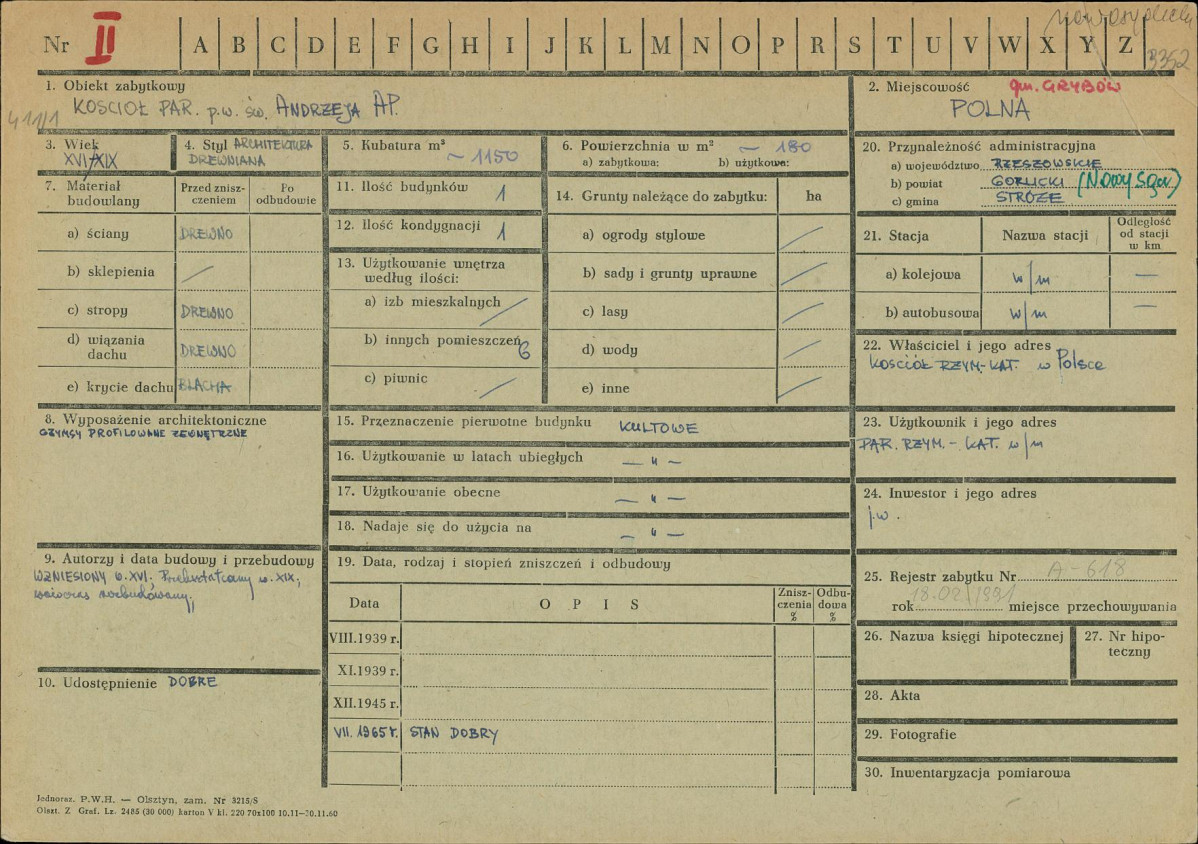 Nr II A B C D E F G H I J K L M N O P R S T U V W X Y Z
nowosądeckie
3352
1. Obiekt zabytkowy
KOŚCIÓŁ PAR. p.w. św. ANDRZEJA AP.
411/1
2. Miejscowość gm. GRYBÓW
POLNA
3. Wiek
XVI/XIX
4. Styl ARCHITEKTURA
DREWNIANA
5. Kubatura m³
~ 1150
6. Powierzchnia w m² ~ 180
a) zabytkowa: b) użytkowa:
7. Materiał
budowlany
Przed znisz-
czeniem
Po
odbudowie
a) ściany DREWNO
b) sklepienia /
c) stropy DREWNO
d) wiązania
dachu DREWNO
e) krycie dachu BLACHA
8. Wyposażenie architektoniczne
GZYMSY PROFILOWANE ZEWNĘTRZNE
9. Autorzy i data budowy i przebudowy
WZNIESIONY w. XVI. Przekształcany w. XIX,
wówczas rozbudowany.
10. Udostępnienie DOBRE
11. Ilość budynków 1
12. Ilość kondygnacji 1
13. Użytkowanie wnętrza
według ilości:
a) izb mieszkalnych /
b) innych pomieszczeń 6
c) piwnic /
14. Grunty należące do zabytku: ha
a) ogrody stylowe /
b) sady i grunty uprawne /
c) lasy /
d) wody /
e) inne /
15. Przeznaczenie pierwotne budynku KULTOWE
16. Użytkowanie w latach ubiegłych — " —
17. Użytkowanie obecne — " —
18. Nadaje się do użycia na — " —
19. Data, rodzaj i stopień zniszczeń i odbudowy
Data
O P I S
Znisz-
czenia
%
Odbu-
dowa
%
VIII.1939 r.
XI.1939 r.
XII.1945 r.
VII. 1965 r. STAN DOBRY
20. Przynależność administracyjna
a) województwo RZESZOWSKIE
b) powiat GORLICKI (Nowy Sącz)
c) gmina STRÓŻE
21. Stacja
Nazwa stacji
Odległość
od stacji
w km
a) kolejowa w/m —
b) autobusowa w/m —
22. Właściciel i jego adres
KOŚCIÓŁ RZYM.-KAT. w Polsce
23. Użytkownik i jego adres
PAR. RZYM. - KAT. w/m
24. Inwestor i jego adres
j.w.
25. Rejestr zabytku Nr A-618
rok 18.02.1991 miejsce przechowywania
26. Nazwa księgi hipotecznej
27. Nr hipo-
teczny
28. Akta
29. Fotografie
30. Inwentaryzacja pomiarowa
Jednoraz. P.W.H. — Olsztyn, zam. Nr 3215/S
Olszt. Z Graf. Lz. 2485 (30 000) karton V kl. 220 70x100 10.11—70.11.60